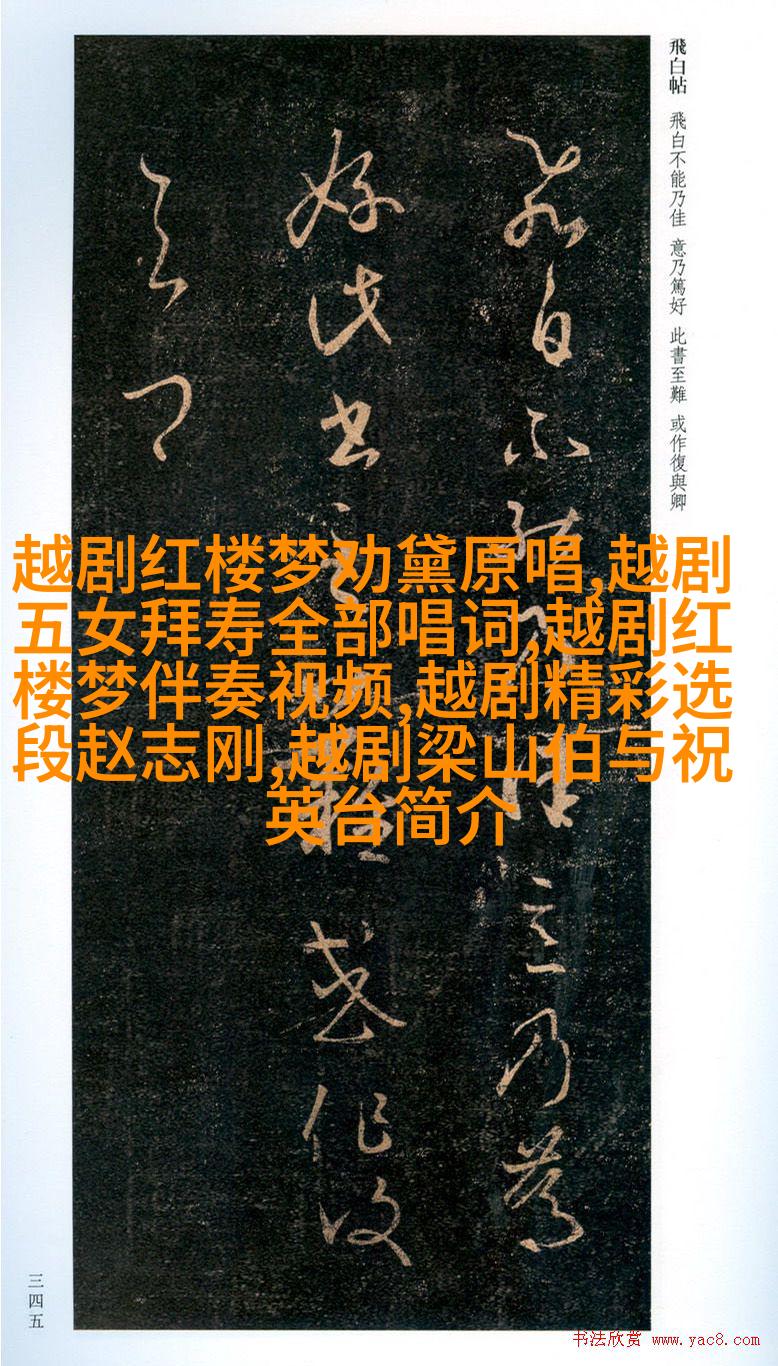 飛白帖 飛白不能乃佳 意乃篤好 此書至難 或作復與卿
飛白不能乃佳意乃篤
好此書至難或作復
與卿
越剧红楼梦劝黛原唱,越剧
五女拜寿全部唱词,越剧红
楼梦伴奏视频,越剧精彩选
段赵志刚,越剧梁山伯与祝
英台简介
三四五
书法欣赏 www.yac8.com